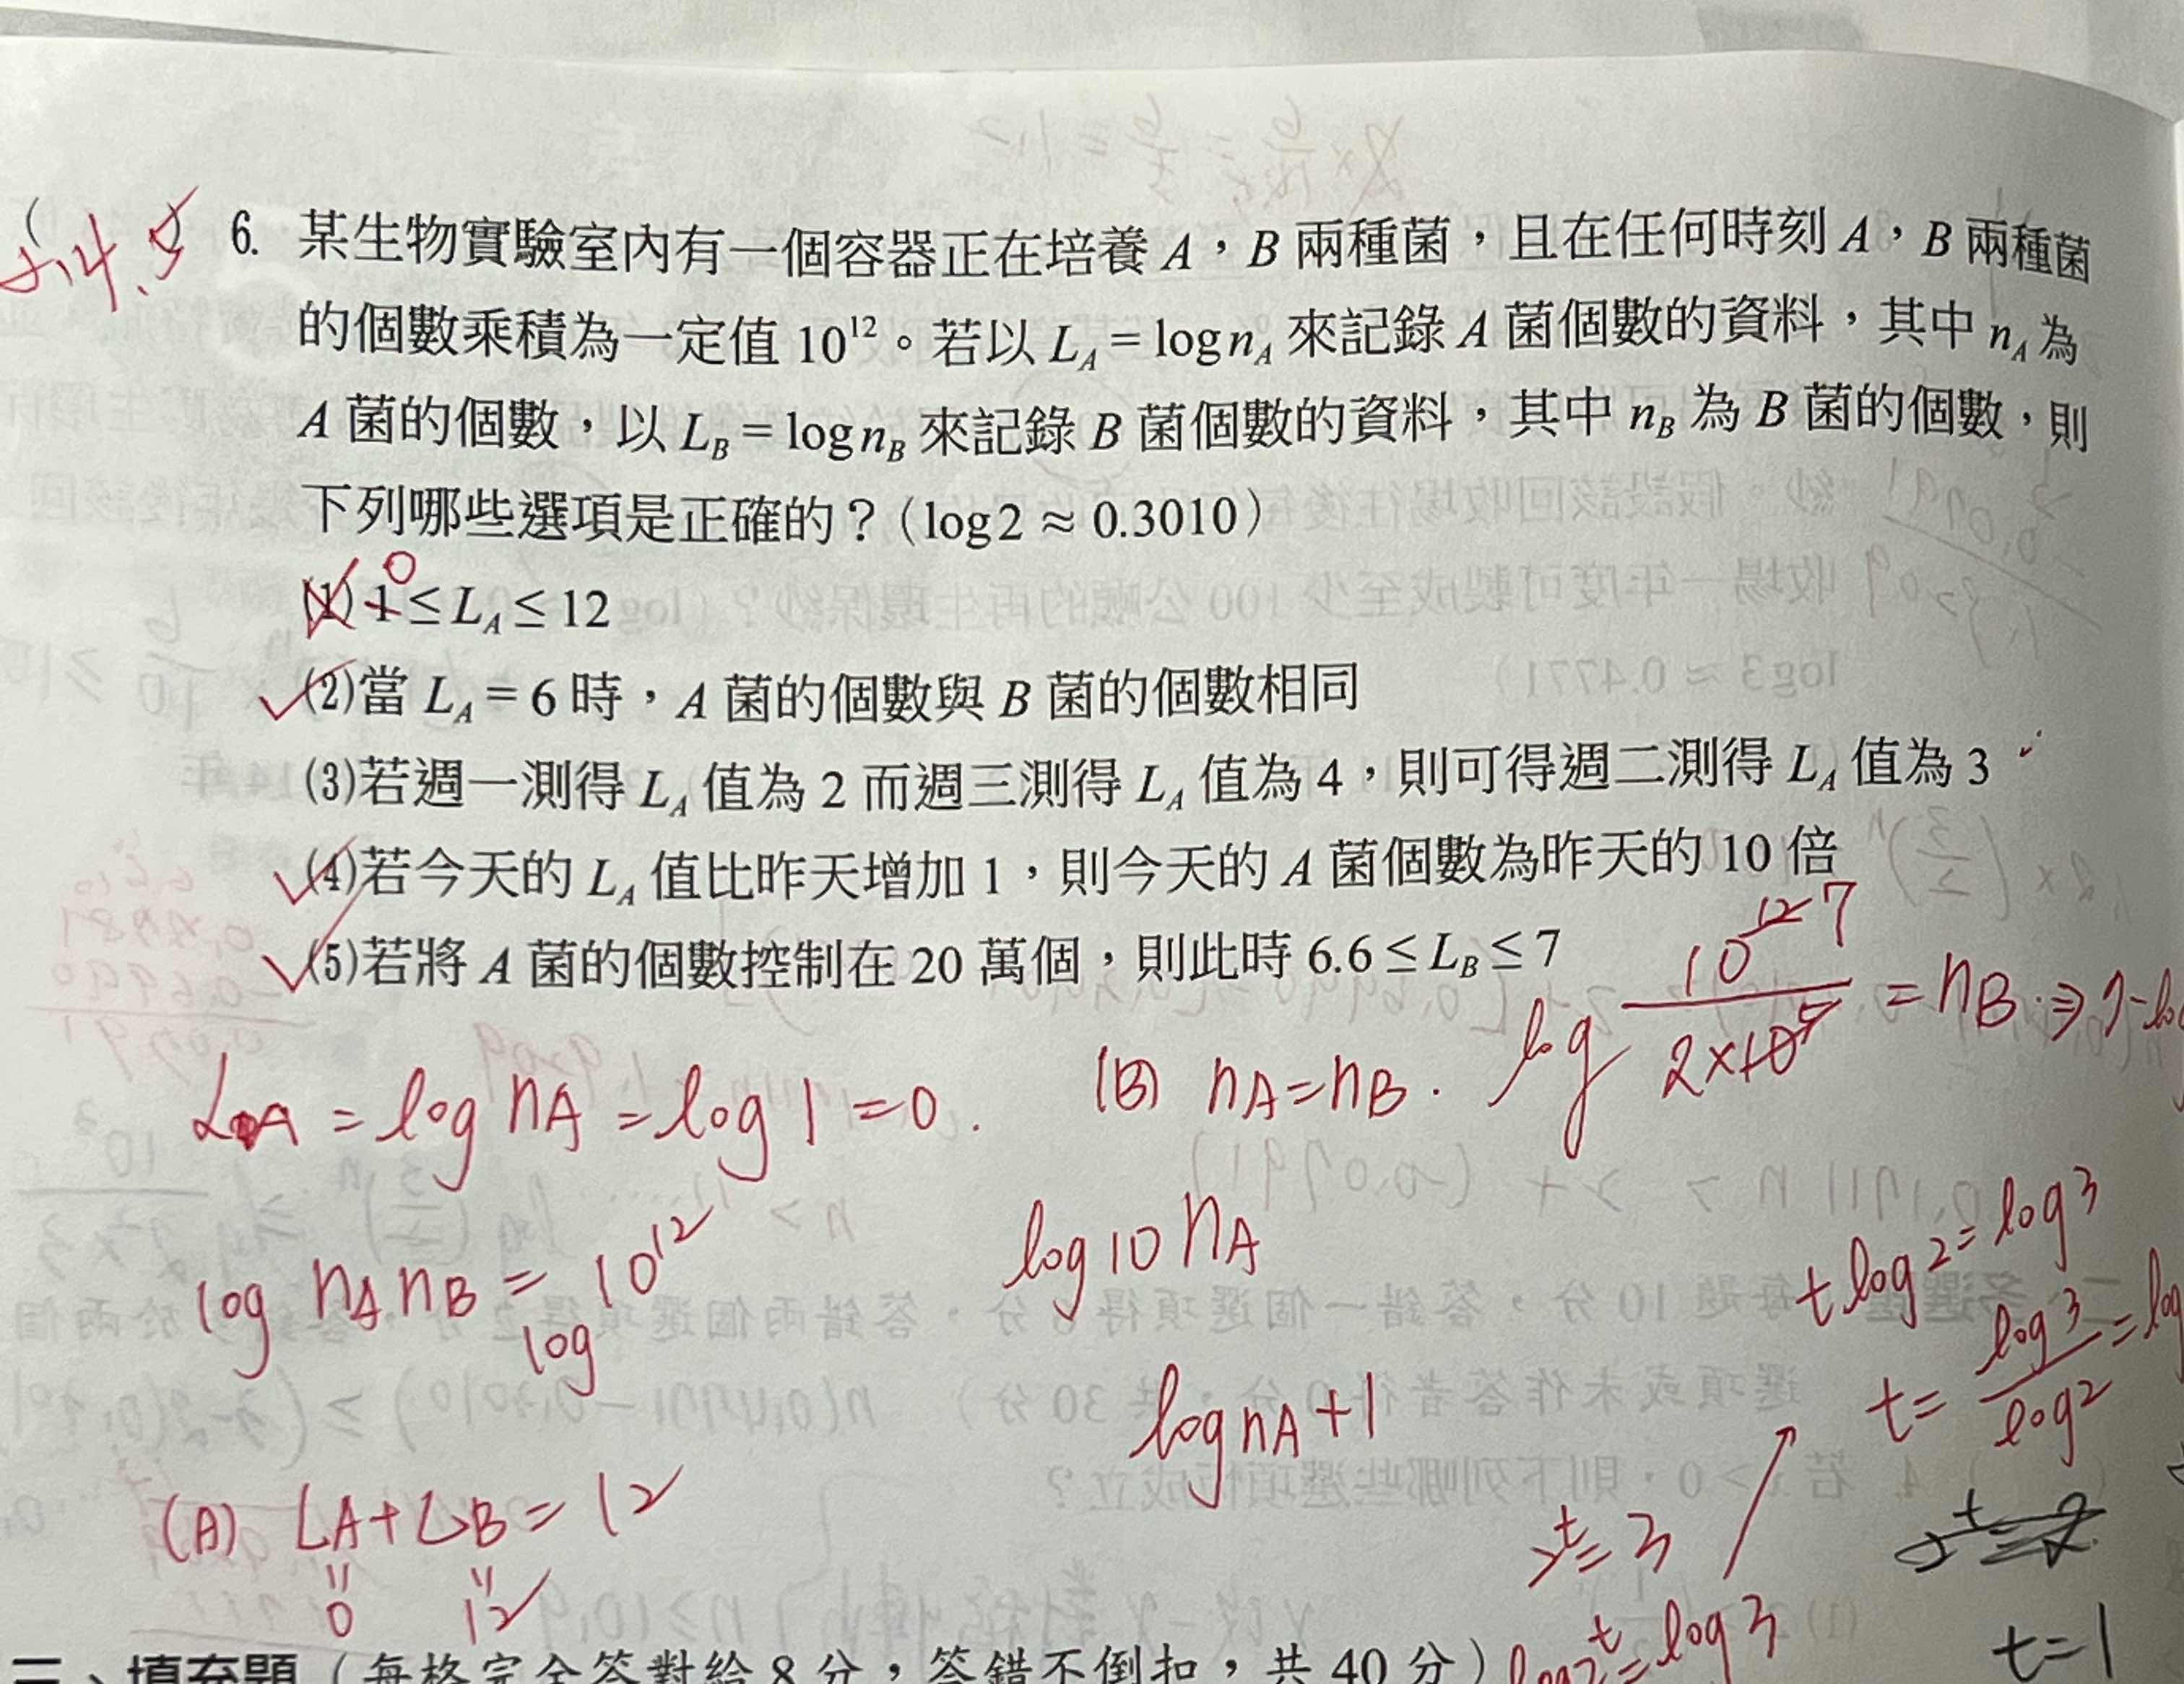 6. 某生物實驗室內有一個容器正在培養 A,B 兩種菌,且在任何時刻 A,B 兩種菌
的個數乘積為一定值 10¹²。若以 L_A = log n_A 來記錄 A 菌個數的資料,其中 n_A 為
A 菌的個數,以 L_B = log n_B 來記錄 B 菌個數的資料,其中 n_B 為 B 菌的個數,則
下列哪些選項是正確的?(log2 ≈ 0.3010)
0
(1) 1 ≤ L_A ≤ 12
(2)當 L_A = 6 時,A 菌的個數與 B 菌的個數相同
(3)若週一測得 L_A 值為 2 而週三測得 L_A 值為 4,則可得週二測得 L_A 值為 3
(4)若今天的 L_A 值比昨天增加 1,則今天的 A 菌個數為昨天的 10 倍
(5)若將 A 菌的個數控制在 20 萬個,則此時 6.6 ≤ L_B ≤ 7
log 10^12 7 / 2×10^5 = n_B ⇒ 7-log
L_A = log n_A = log 1 = 0.
(B) n_A = n_B.
log n_A n_B = 10¹²
log
log 10 n_A
log n_A + 1
(A) L_A + L_B = 12
0 12
t log 2 = log 3
t = log 3 / log 2 = log
2^t = 3
log 2^t = log 3
t = 1
二、填充題(每格完全答對給 8 分,答錯不倒扣,共 40 分)